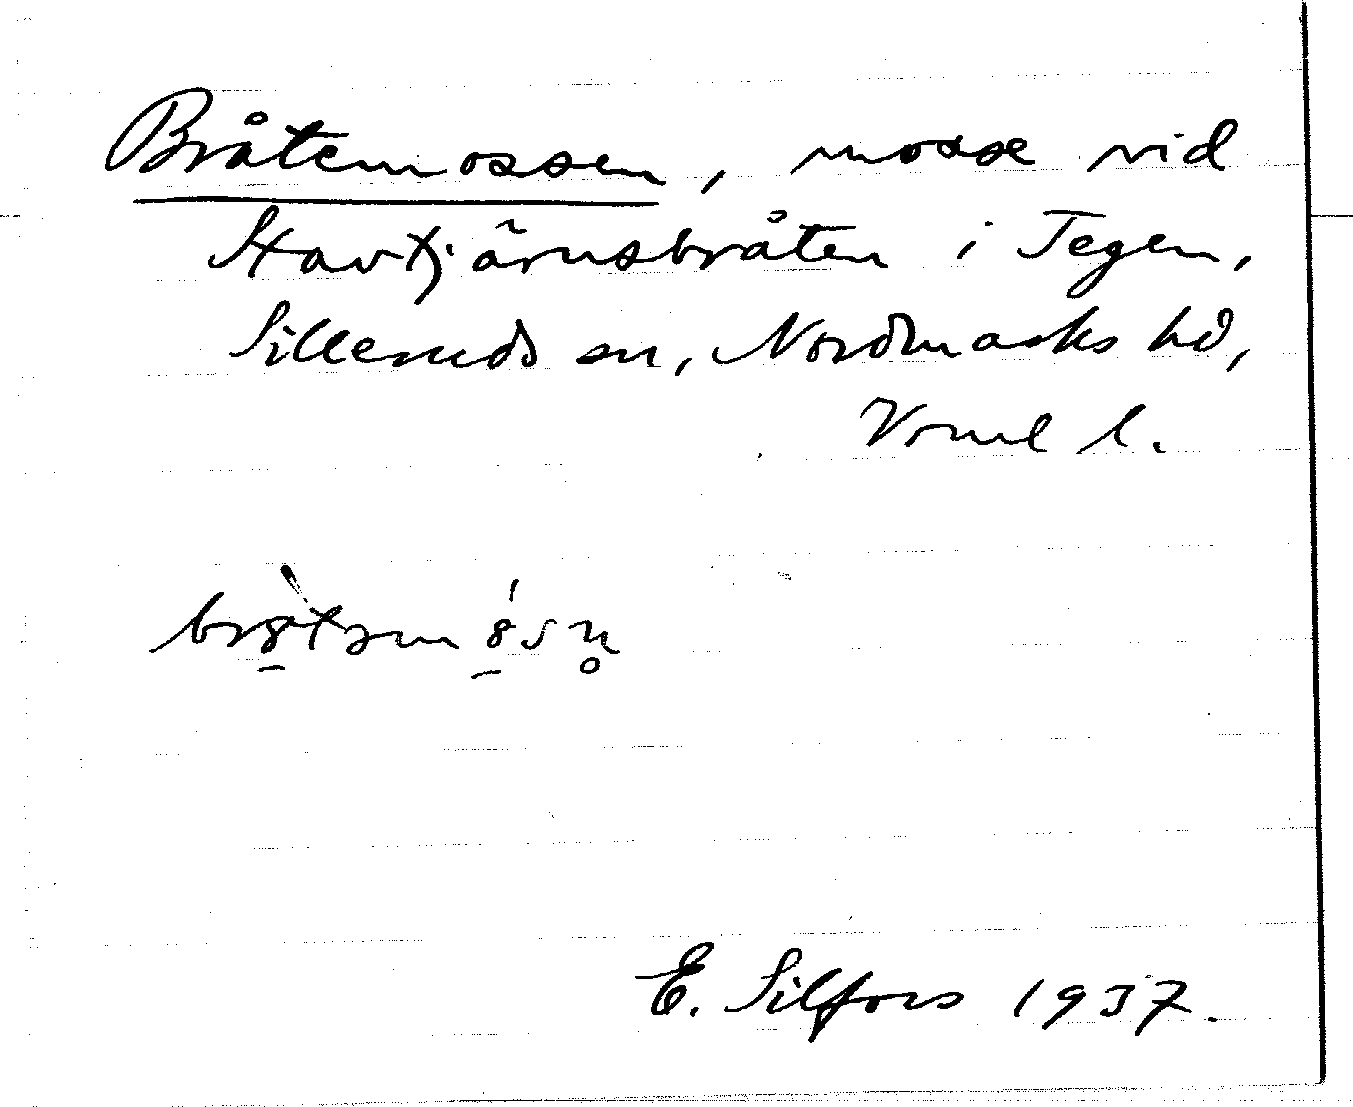 Bråtemossen, mosse vid
Stavtjärnsbråten i Tegen,
Silleruds sn, Nordmarks hd,
Vrml l.
E. Silfors 1937.